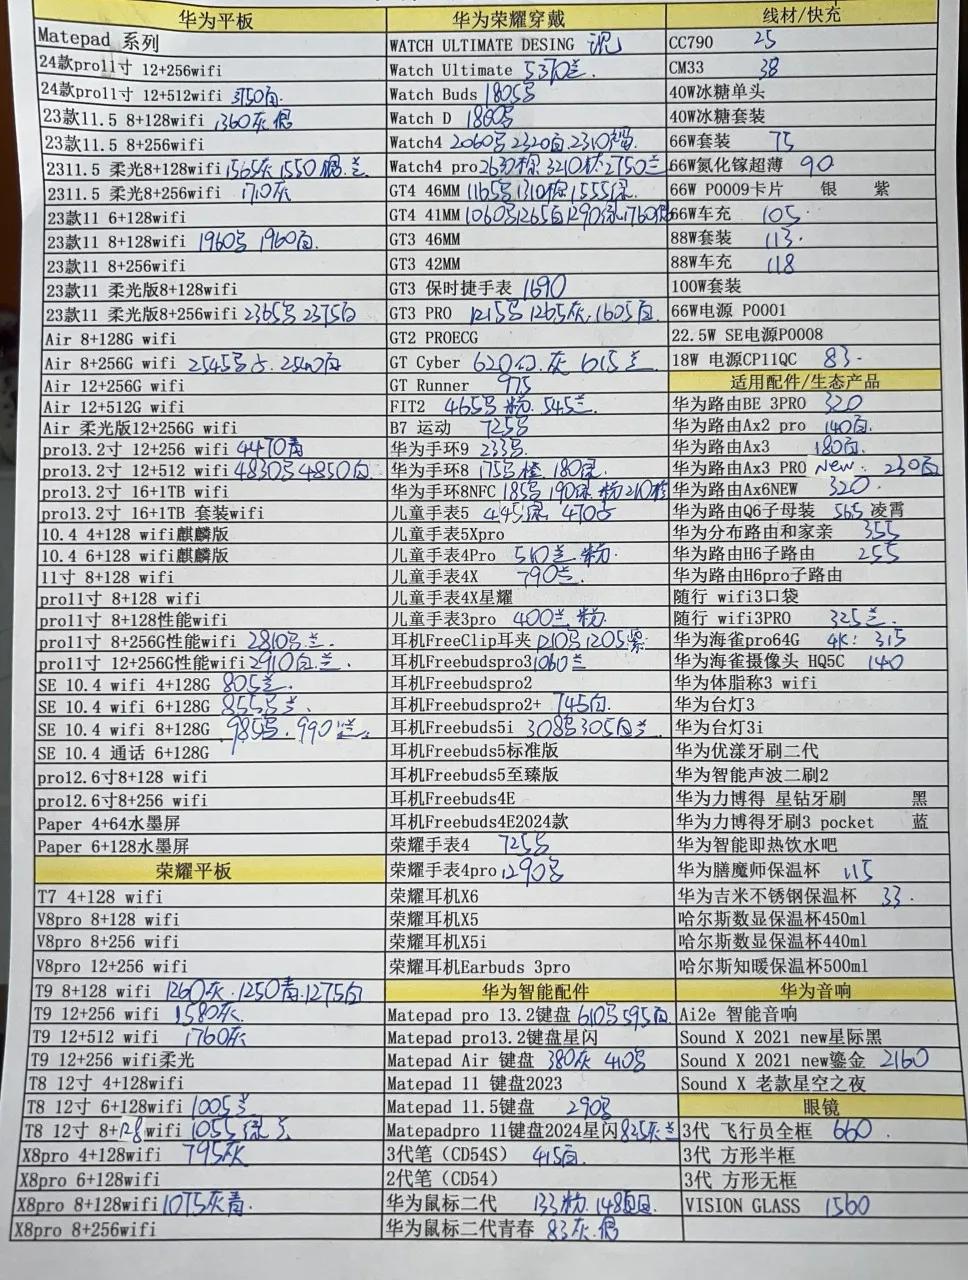 华为平板
Matepad 系列
24款pro11寸 12+256wifi
24款pro11寸 12+512wifi 3750白.
23款11.5 8+128wifi 1360灰
23款11.5 8+256wifi
2311.5 柔光8+128wifi 1565灰 1550 兰
2311.5 柔光8+256wifi 1710灰
23款11 6+128wifi
23款11 8+128wifi 1960 1960白.
23款11 8+256wifi
23款11 柔光版8+128wifi
23款11 柔光版8+256wifi 2365 2375白
Air 8+128G wifi
Air 8+256G wifi 2545 2540白
Air 12+256G wifi
Air 12+512G wifi
Air 柔光版12+256G wifi
pro13.2寸 12+256 wifi 4470青
pro13.2寸 12+512 wifi 4830 4850白
pro13.2寸 16+1TB wifi
pro13.2寸 16+1TB 套装wifi
10.4 4+128 wifi麒麟版
10.4 6+128 wifi麒麟版
11寸 8+128 wifi
pro11寸 8+128 wifi
pro11寸 8+128性能wifi
pro11寸 8+256G性能wifi 2810 兰.
pro11寸 12+256G性能wifi 2910白.兰.
SE 10.4 wifi 4+128G 805兰.
SE 10.4 wifi 6+128G 855 兰.
SE 10.4 wifi 8+128G 985 . 990兰
SE 10.4 通话 6+128G
pro12.6寸8+128 wifi
pro12.6寸8+256 wifi
Paper 4+64水墨屏
Paper 6+128水墨屏
荣耀平板
T7 4+128 wifi
V8pro 8+128 wifi
V8pro 8+256 wifi
V8pro 12+256 wifi
T9 8+128 wifi 1260灰.1250青.1275白
T9 12+256 wifi 1580灰.
T9 12+512 wifi 1760灰
T9 12+256 wifi柔光
T8 12寸 4+128wifi
T8 12寸 6+128wifi 1005兰
T8 12寸 8+128wifi 1055绿 兰
X8pro 4+128wifi 795灰
X8pro 6+128wifi
X8pro 8+128wifi 1075灰青.
X8pro 8+256wifi
华为荣耀穿戴
WATCH ULTIMATE DESING 沉
Watch Ultimate 5370兰.
Watch Buds 1805
Watch D 1860
Watch4 2060 2320白 2310
Watch4 pro 2630棕 3210 2750兰
GT4 46MM 1165 1310棕 1555绿
GT4 41MM 1060 1265白 1290绿 1760
GT3 46MM
GT3 42MM
GT3 保时捷手表 1690
GT3 PRO 1215 1265灰.1605白.
GT2 PROECG
GT Cyber 620幻.灰 615兰
GT Runner 975
FIT2 465 粉. 545兰
B7 运动 725
华为手环9 233
华为手环8 175 橙 180绿
华为手环8NFC 185 190绿 粉 210
儿童手表5 445绿 470
儿童手表5Xpro
儿童手表4Pro 510兰.粉.
儿童手表4X 790兰.
儿童手表4X星耀
儿童手表3pro 400兰.粉.
耳机FreeClip耳夹 1210 1205紫
耳机Freebudspro3 1060兰
耳机Freebudspro2
耳机Freebudspro2+ 745白
耳机Freebuds5i 308 305白兰
耳机Freebuds5标准版
耳机Freebuds5至臻版
耳机Freebuds4E
耳机Freebuds4E2024款
荣耀手表4 725
荣耀手表4pro 1290
荣耀耳机X6
荣耀耳机X5
荣耀耳机X5i
荣耀耳机Earbuds 3pro
华为智能配件
Matepad pro 13.2键盘 610 595白
Matepad pro13.2键盘星闪
Matepad Air 键盘 380灰 410
Matepad 11 键盘2023
Matepad 11.5键盘 290
Matepadpro 11键盘2024星闪 825灰兰
3代笔（CD54S） 415白
2代笔（CD54）
华为鼠标二代 133粉. 148白.
华为鼠标二代青春 83灰.
线材/快充
CC790 25
CM33 38
40W冰糖单头
40W冰糖套装
66W套装 75
66W氮化镓超薄 90
66W P0009卡片 银 紫
66W车充 105.
88W套装 113.
88W车充 118
100W套装
66W电源 P0001
22.5W SE电源P0008
18W 电源CP11QC 83.
适用配件/生态产品
华为路由BE 3PRO 320
华为路由Ax2 pro 140白.
华为路由Ax3 180白.
华为路由Ax3 PRO New. 230白
华为路由Ax6NEW 320.
华为路由Q6子母装 565 凌霄
华为分布路由和家亲 355
华为路由H6子路由 255
华为路由H6pro子路由
随行 wifi3口袋
随行 wifi3PRO 325兰.
华为海雀pro64G 4K: 315
华为海雀摄像头 HQ5C 140
华为体脂称3 wifi
华为台灯3
华为台灯3i
华为优漾牙刷二代
华为智能声波二刷2
华为力博得 星钻牙刷 黑
华为力博得牙刷3 pocket 蓝
华为智能即热饮水吧
华为膳魔师保温杯 115
华为吉米不锈钢保温杯 33.
哈尔斯数显保温杯450ml
哈尔斯数显保温杯440ml
哈尔斯知暖保温杯500ml
华为音响
Ai2e 智能音响
Sound X 2021 new星际黑
Sound X 2021 new鎏金 2160
Sound X 老款星空之夜
眼镜
3代 飞行员全框 660.
3代 方形半框
3代 方形无框
VISION GLASS 1560